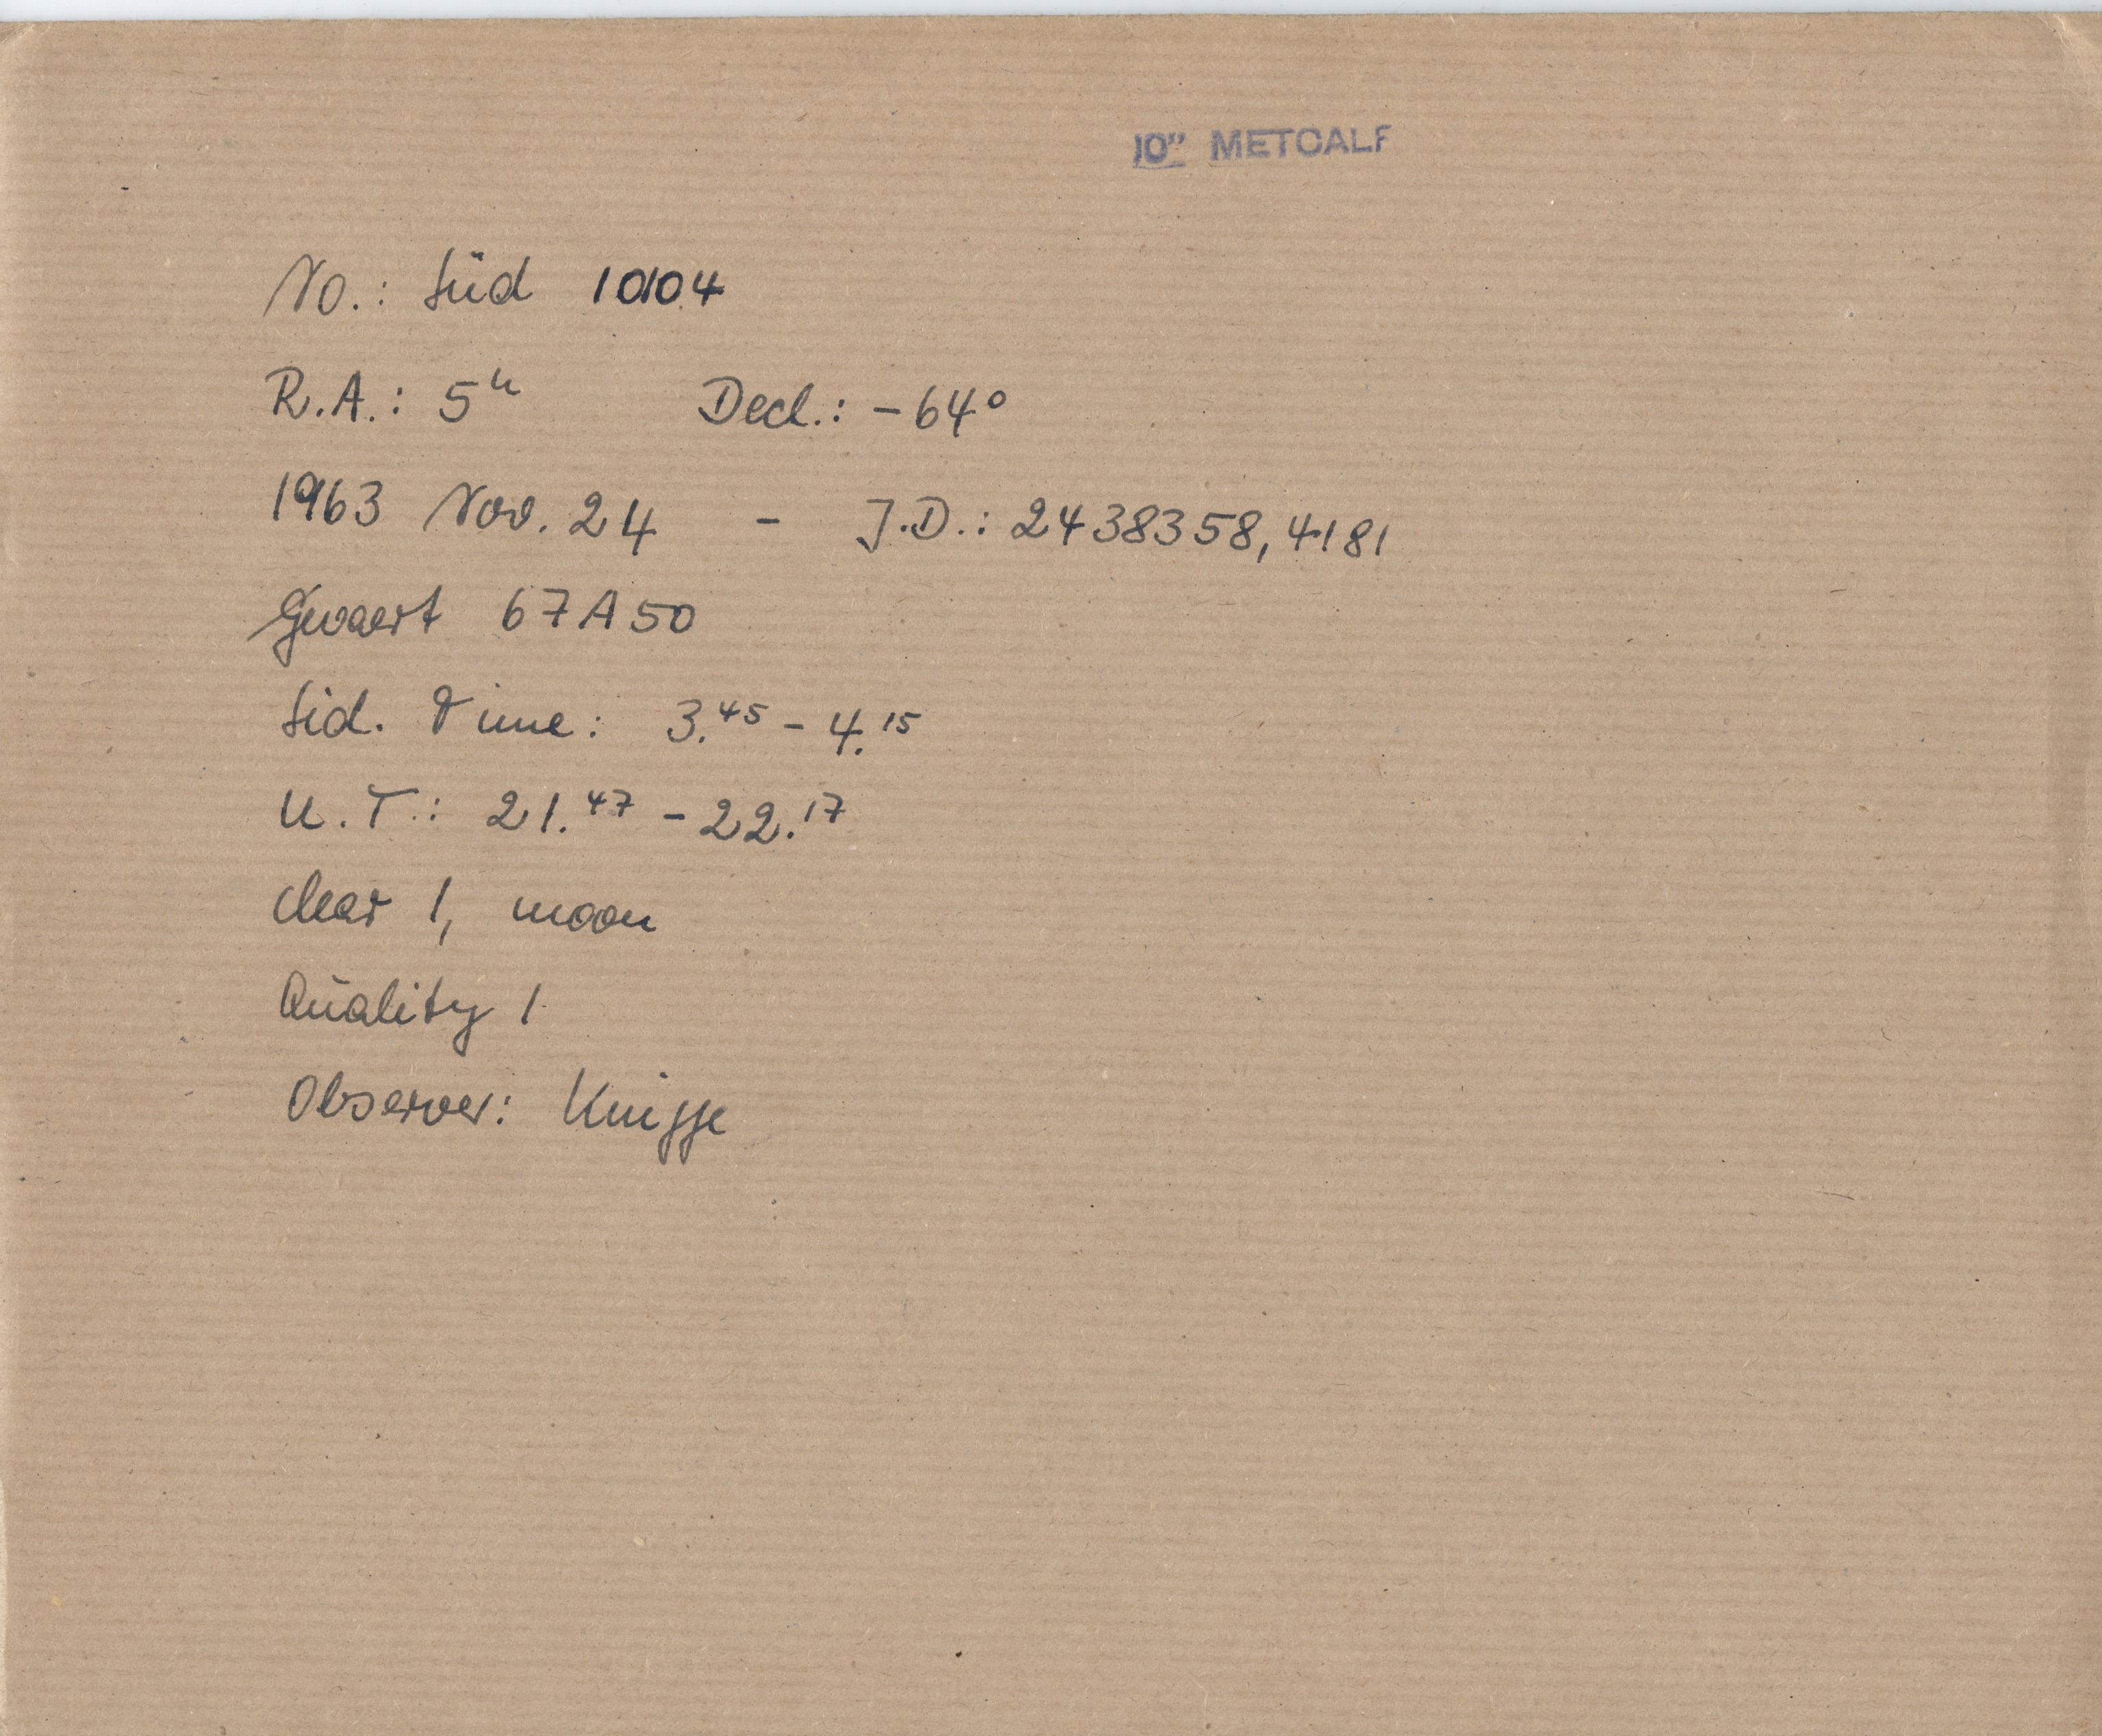 10" METCALF
No.: Süd 10104
R.A.: 5ʰ Decl.: -64°
1963 Nov. 24 - J.D.: 2438358,4181
Gevaert 67A50
Sid. Time: 3.⁴⁵ - 4.¹⁵
U.T.: 21.⁴⁷ - 22.¹⁷
clear 1, moon
Quality 1
Observer: Knigge